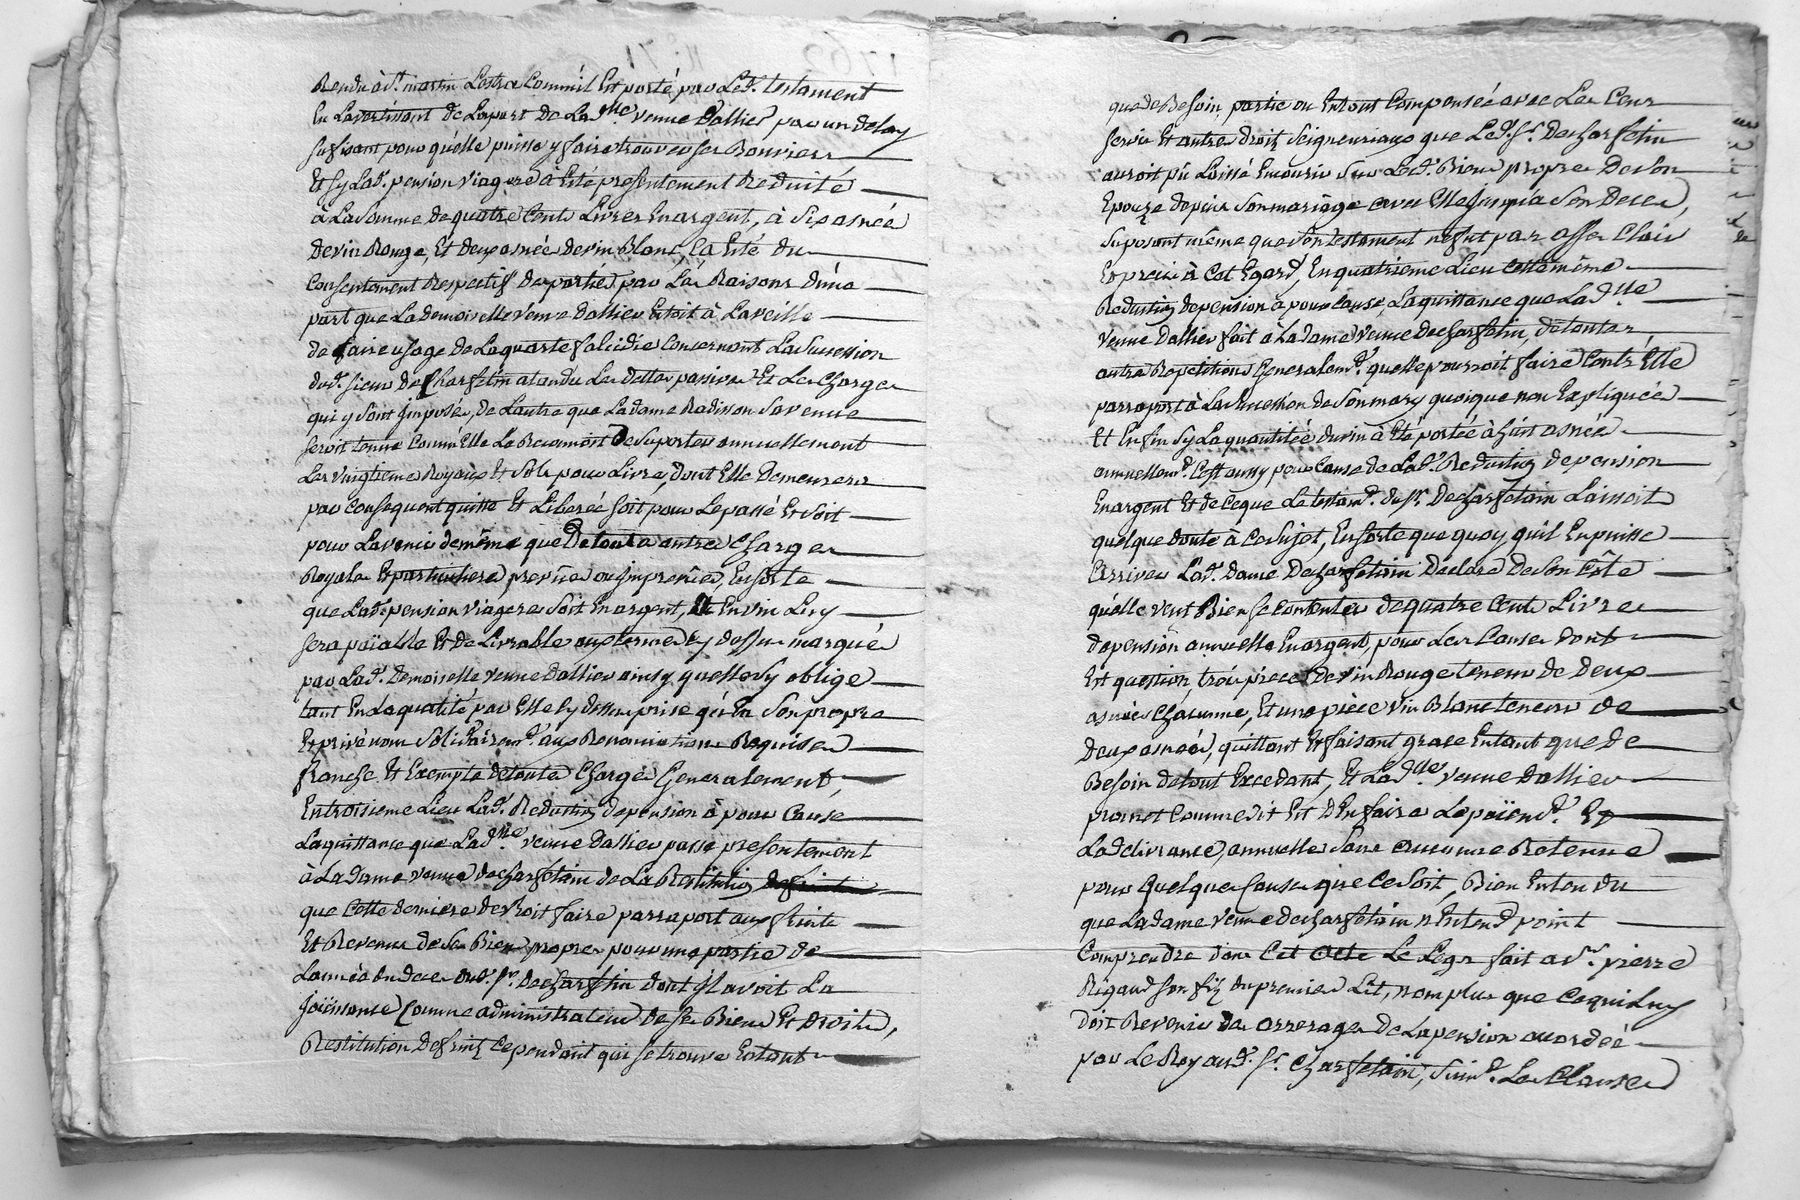 Rendu à St. martin Lestra Comme il Est porté par Led. testament
En Lavertissant de La part de Lad.lle veuve Dallier par un delay
sufisant pour quélle puisse y faire trouver ses Bouviers
Et sy Lad. pension viagere à Eté presentement Reduite
à La somme de quatre Cents Livres En argent, à six asnées
de vin Rouge, Et deux asnées de vin Blanc, Ca Eté du
Consentement Respectif des parties par Les Raisons dune
part que La demoiselle veuve Dallier Estoit à La veille
de faire usage de La quarte falcidie Concernant La Succession
dud. sieur de Charfetin atandu Les dettes passives Et Les Charges
qui y sont jmposés, de Lautre que La dame Radisson sa veuve
seroit tenue Comme Elle La Reconnoit De suporter annuellement
Les vingtiemes Royaux Et sols pour Livre, dont Elle Demeurera
par Consequent quitte Et Liberée soit pour Le passé Et soit
pour Lavenir de même que De toutes autres Charges
Royales Et particulieres prevües ou jmprevües, En sorte
que Lad. pension viagere soit En argent, Et En vin Luy
sera païable Et de Livrable aux termes cy dessus marqué
par Lad. Demoiselle veuve Dallier ainsy quelle sy oblige
tant En La qualité par Elle cy dessus prise qu'En son propre
Et privé nom solidairemt. aux Renonciations Requises
franche Et Exempte de toutes Charges Generalement,
En troisieme Lieu Lad. Reduction de pension à pour Cause
La quittance que Lad.lle veuve Dallier passe presentement
à La dame veuve de Charfetain de La Restitution
que Cette derniere devRoit faire par raport aux fruits
Et Revenus de ses Biens propres pour une partie de
Lannée du deces dud. sr. De Charfetin dont jl avoit La
joüissance Comme administrateur de ses Biens Et Droits,
Restitution de fruits Cependant qui se trouve En tant
que de Besoin partie ou En tout Compensée avec Les Cens
servis Et autres droits seigneuriaux que Led. sr. de Charfetin
auroit pû Laissé Encourir sur Led. Biens propres De son
Epouze depuis son mariage avec Elle jusqu'à son Deces,
suposant même que son testament ne fut pas assés Clair
Et precis à Cet Egard, En quatrieme Lieu Cette même
Reduction de pension a pour Cause, La quittance que Lad.lle
veuve Dallier fait à La dame veuve de Charfetin, de toutes
autres Repetitions Generalemt. quelle pourroit faire Contr'Elle
par raport à La succession de son mary quoique non Expliquée
Et Enfin sy La quantitée du vin à Eté portée à huit asnées
annuellemt. C'est aussy pour Cause de Lad. Reduction de pension
En argent Et de Ceque Le testamt. du sr. De Charfetain Laissoit
quelque doute à Ce sujet, En sorte que quoy qu'il En puisse
Arriver Lad. Dame De Charfetain Declare de son Côté
qu'elle veut Bien se Contenter de quatre Cents Livres
de pension annuelle En argent, pour Les Causes dont
Est question, trois pieces de vin Rouge teneur de deux
asnées Chacunne, Et une piéce vin Blanc teneur de
deux asnées, quittant Et faisant grace En tant que de
Besoin de tout Excedant, Et Lad.lle veuve Dallier
promet Comme dit Est D'En faire Le païemt. Et
La delivrance, annuelle sans aucunne Retenue
pour quelque Cause que Ce soit, Bien Entendu
que La dame veuve de Charfetain n'Entend point
Comprendre dans Cet acte Le Legs fait a Sr. pierre
Rigaud son fiz du premier Lit, nom plus que Ce qui Luy
Doit Revenir Des arrerages de La pension accordée
par Le Roy aud. sr. Charfetain, suivt. Les Clauses